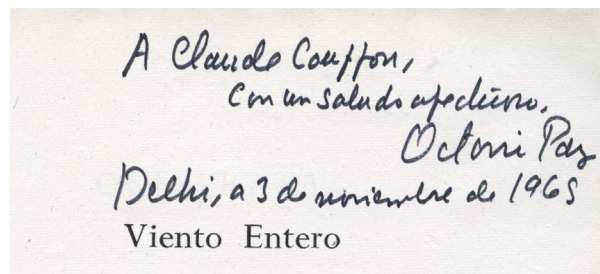 A Claude Couffon,
Con un saludo afectuoso,
Octavio Paz
Delhi, a 3 de noviembre de 1965
Viento Entero